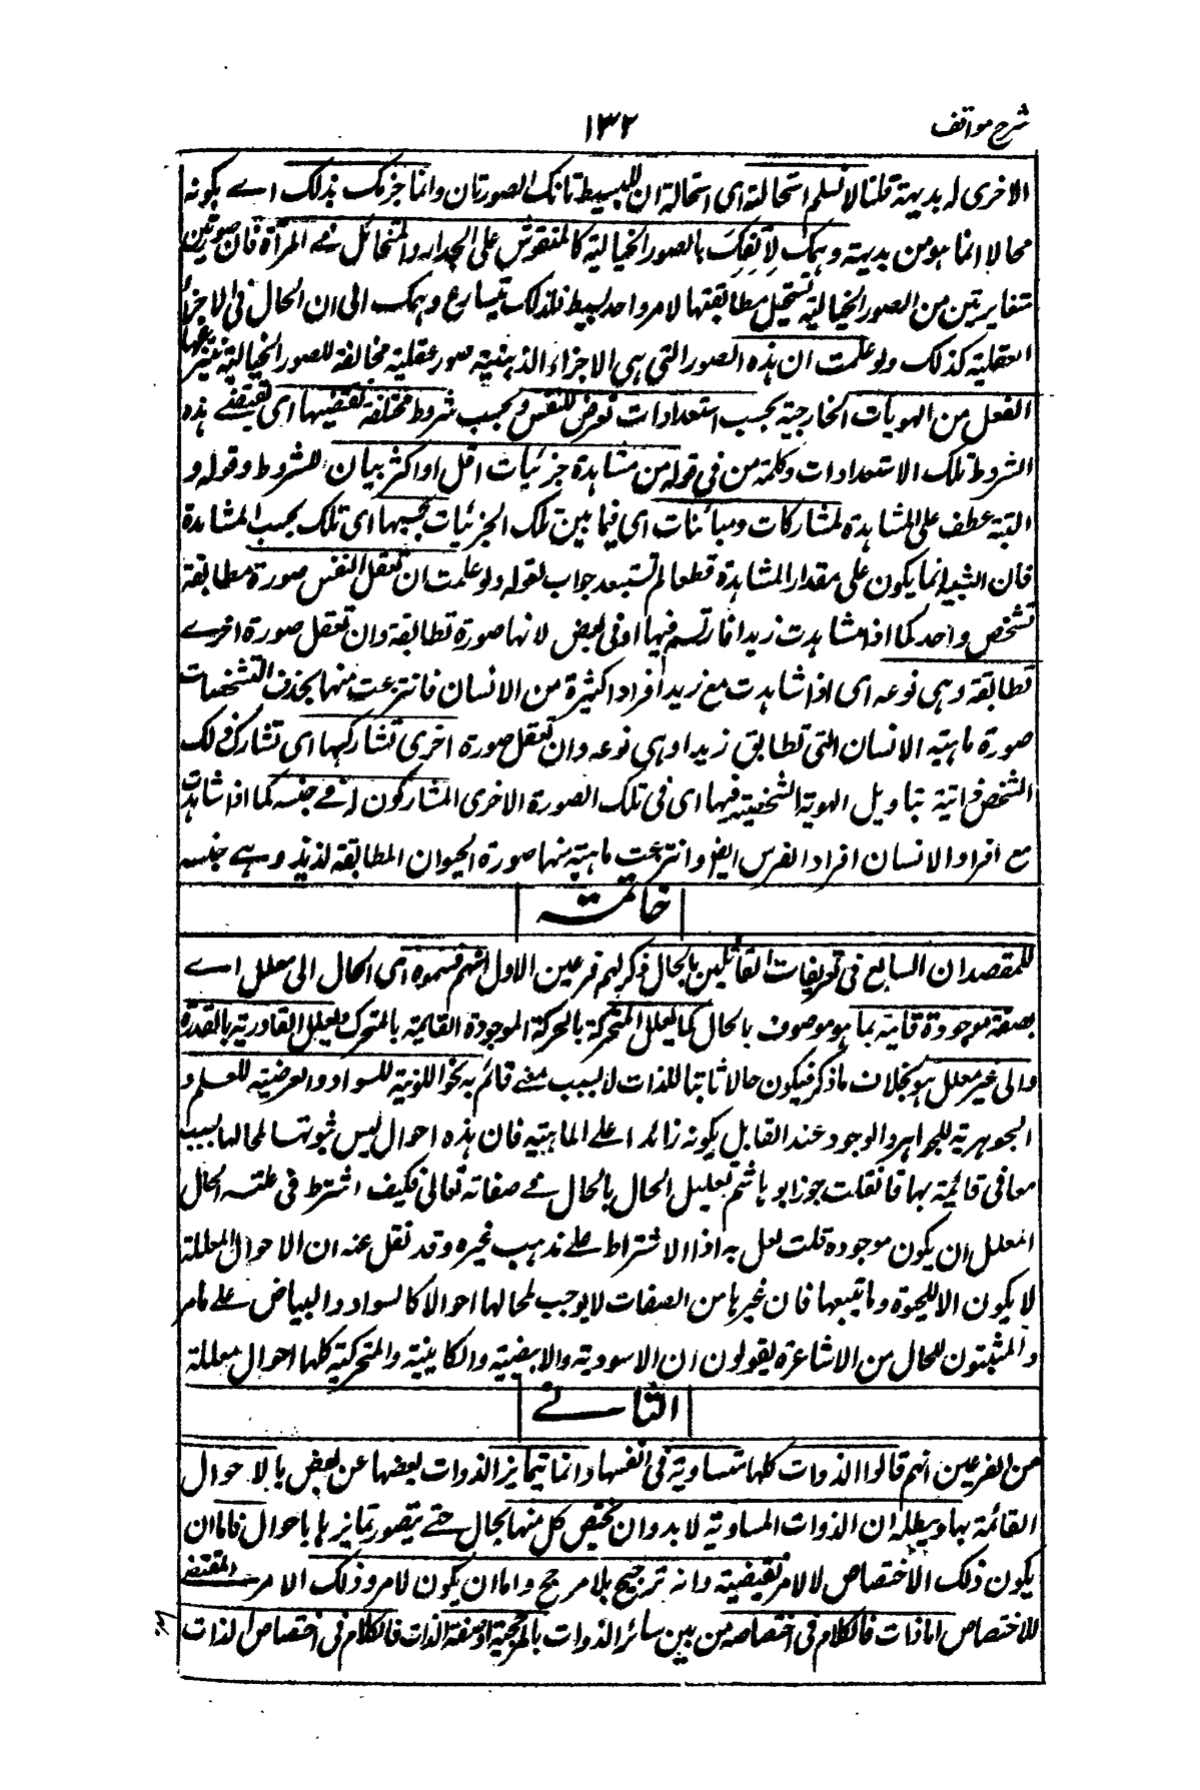 شرح مواقف
١٣٢
الاخرى له بديهة قلنا لا نسلم استحالته اى استحالة ان للبسيط تانك الصورتان وانما جزمك بذلك اے بكونه
محالا انما هو من بديهة وهمك لالفك بالصور الخيالية كالمنقوش على الجدار والمتخائل فے المرآة فان صورتين
متغايرتين من الصور الخيالية تستحيل مطابقتهما لامر واحد بسيط فلذلك يتسارع وهمك الى ان الحال فى الاجزاء
العقلية كذلك ولو علمت ان هذه الصور التى هى الاجزاء الذهنية صور عقلية مخالفة للصور الخيالية ينتزعها
العقل من الهويات الخارجية بحسب استعدادات تعرض للنفس و بحسب شروط مختلفة تقتضيها اى تقتضے هذه
الشروط تلك الاستعدادات وكلمة من فى قوله من مشاهدة جزئيات اقل او اكثر بيان للشروط وقوله و
التنبه عطف على المشاهدة لمشاركات ومبائنات اى فيما بين تلك الجزئيات بحسبها اى تلك بحسب المشاهدة
فان التنبه انما يكون على مقدار المشاهدة قطعا لم تستبعد جواب لقوله ولو علمت ان تعقل النفس صورة مطابقة
تشخص واحد كما اذا شاهدت زيدا فارتسم فيها او فى بعض لانها صورة تطابقة وان تعقل صورة اخرے
تطابقة وهى نوعه اى اذا شاهدت مع زيد افرادا كثيرة من الانسان فانتزعت منها بحذف التشخصات
صورة ماهية الانسان التى تطابق زيدا وهى نوعه وان تعقل صورة اخرى تشاركها اى تشارك ذلك
الشخص فانية بتاويل الهوية الشخصية فيها اى فى تلك الصورة الاخرى المشاركون له فے جنسه كما اذا شاهدت
مع افراد الانسان افراد الفرس ايضا وانتزعت ماهية منها صورة الحيوان المطابقة لذ يذ وهے جنسه
خاتمته
للمقصد ان السابع فى تعريفات القائلين بالحال ذكر لهم فرعين الاول انهم قسموه اى الحال الى معلل اے
بصفة موجودة قايمة بما هو موصوف بالحال كما يعلل المتحركة بالحركة الموجودة القائمة بالمتحرك ويعلل القادرية بالقدرة
والى غير معلل هو بخلاف ما ذكر فيكون حالا ثابتا للذات لا بسبب معنے قائم به نحو اللونية للسواد والعرضية للعلم و
الجوهرية للجواهر والوجود عند القابل بكونه زائدا علے الماهية فان هذه احوال ليس ثبوتها لمحالها بسبب
معانى قائمة بها فان قلت جوز ابو هاشم تعليل الحال بالحال فے صفاته تعالى فكيف اشترط فى علته الحال
المعلل ان يكون موجودة قلت لعل هذا الاشتراط علے مذهب غيره وقد نقل عنه ان الاحوال المعللة
لا يكون الا للحيوة وما يتبعها فان غيرها من الصفات لا يوجب لمحالها احوالا كالسواد والبياض علے مامر
والمثبتون للحال من الاشاعرة يقولون ان الاسودية والابيضية والكاينية والمتحركية كلها احوال معللة
الثانے
من الفرعين انهم قالوا الذوات كلها متساوية فى انفسها وانما يتمايز الذوات بعضها عن بعض بالاحوال
القائمة بها ويبطله ان الذوات المساوية لابد وان يختص كل منها بحال حتے يتصور تمايزها باحوال فاما ان
يكون ذلك الاختصاص لا لامر يقتضيه وانه ترجيح بلا مرجح واما ان يكون لامر وذلك الامر المقتضے
للاختصاص اما ذات فالكلام فى اختصاصه من بين سائر الذوات بالمرجحية او صفة الذات فالكلام فى اختصاص الذات